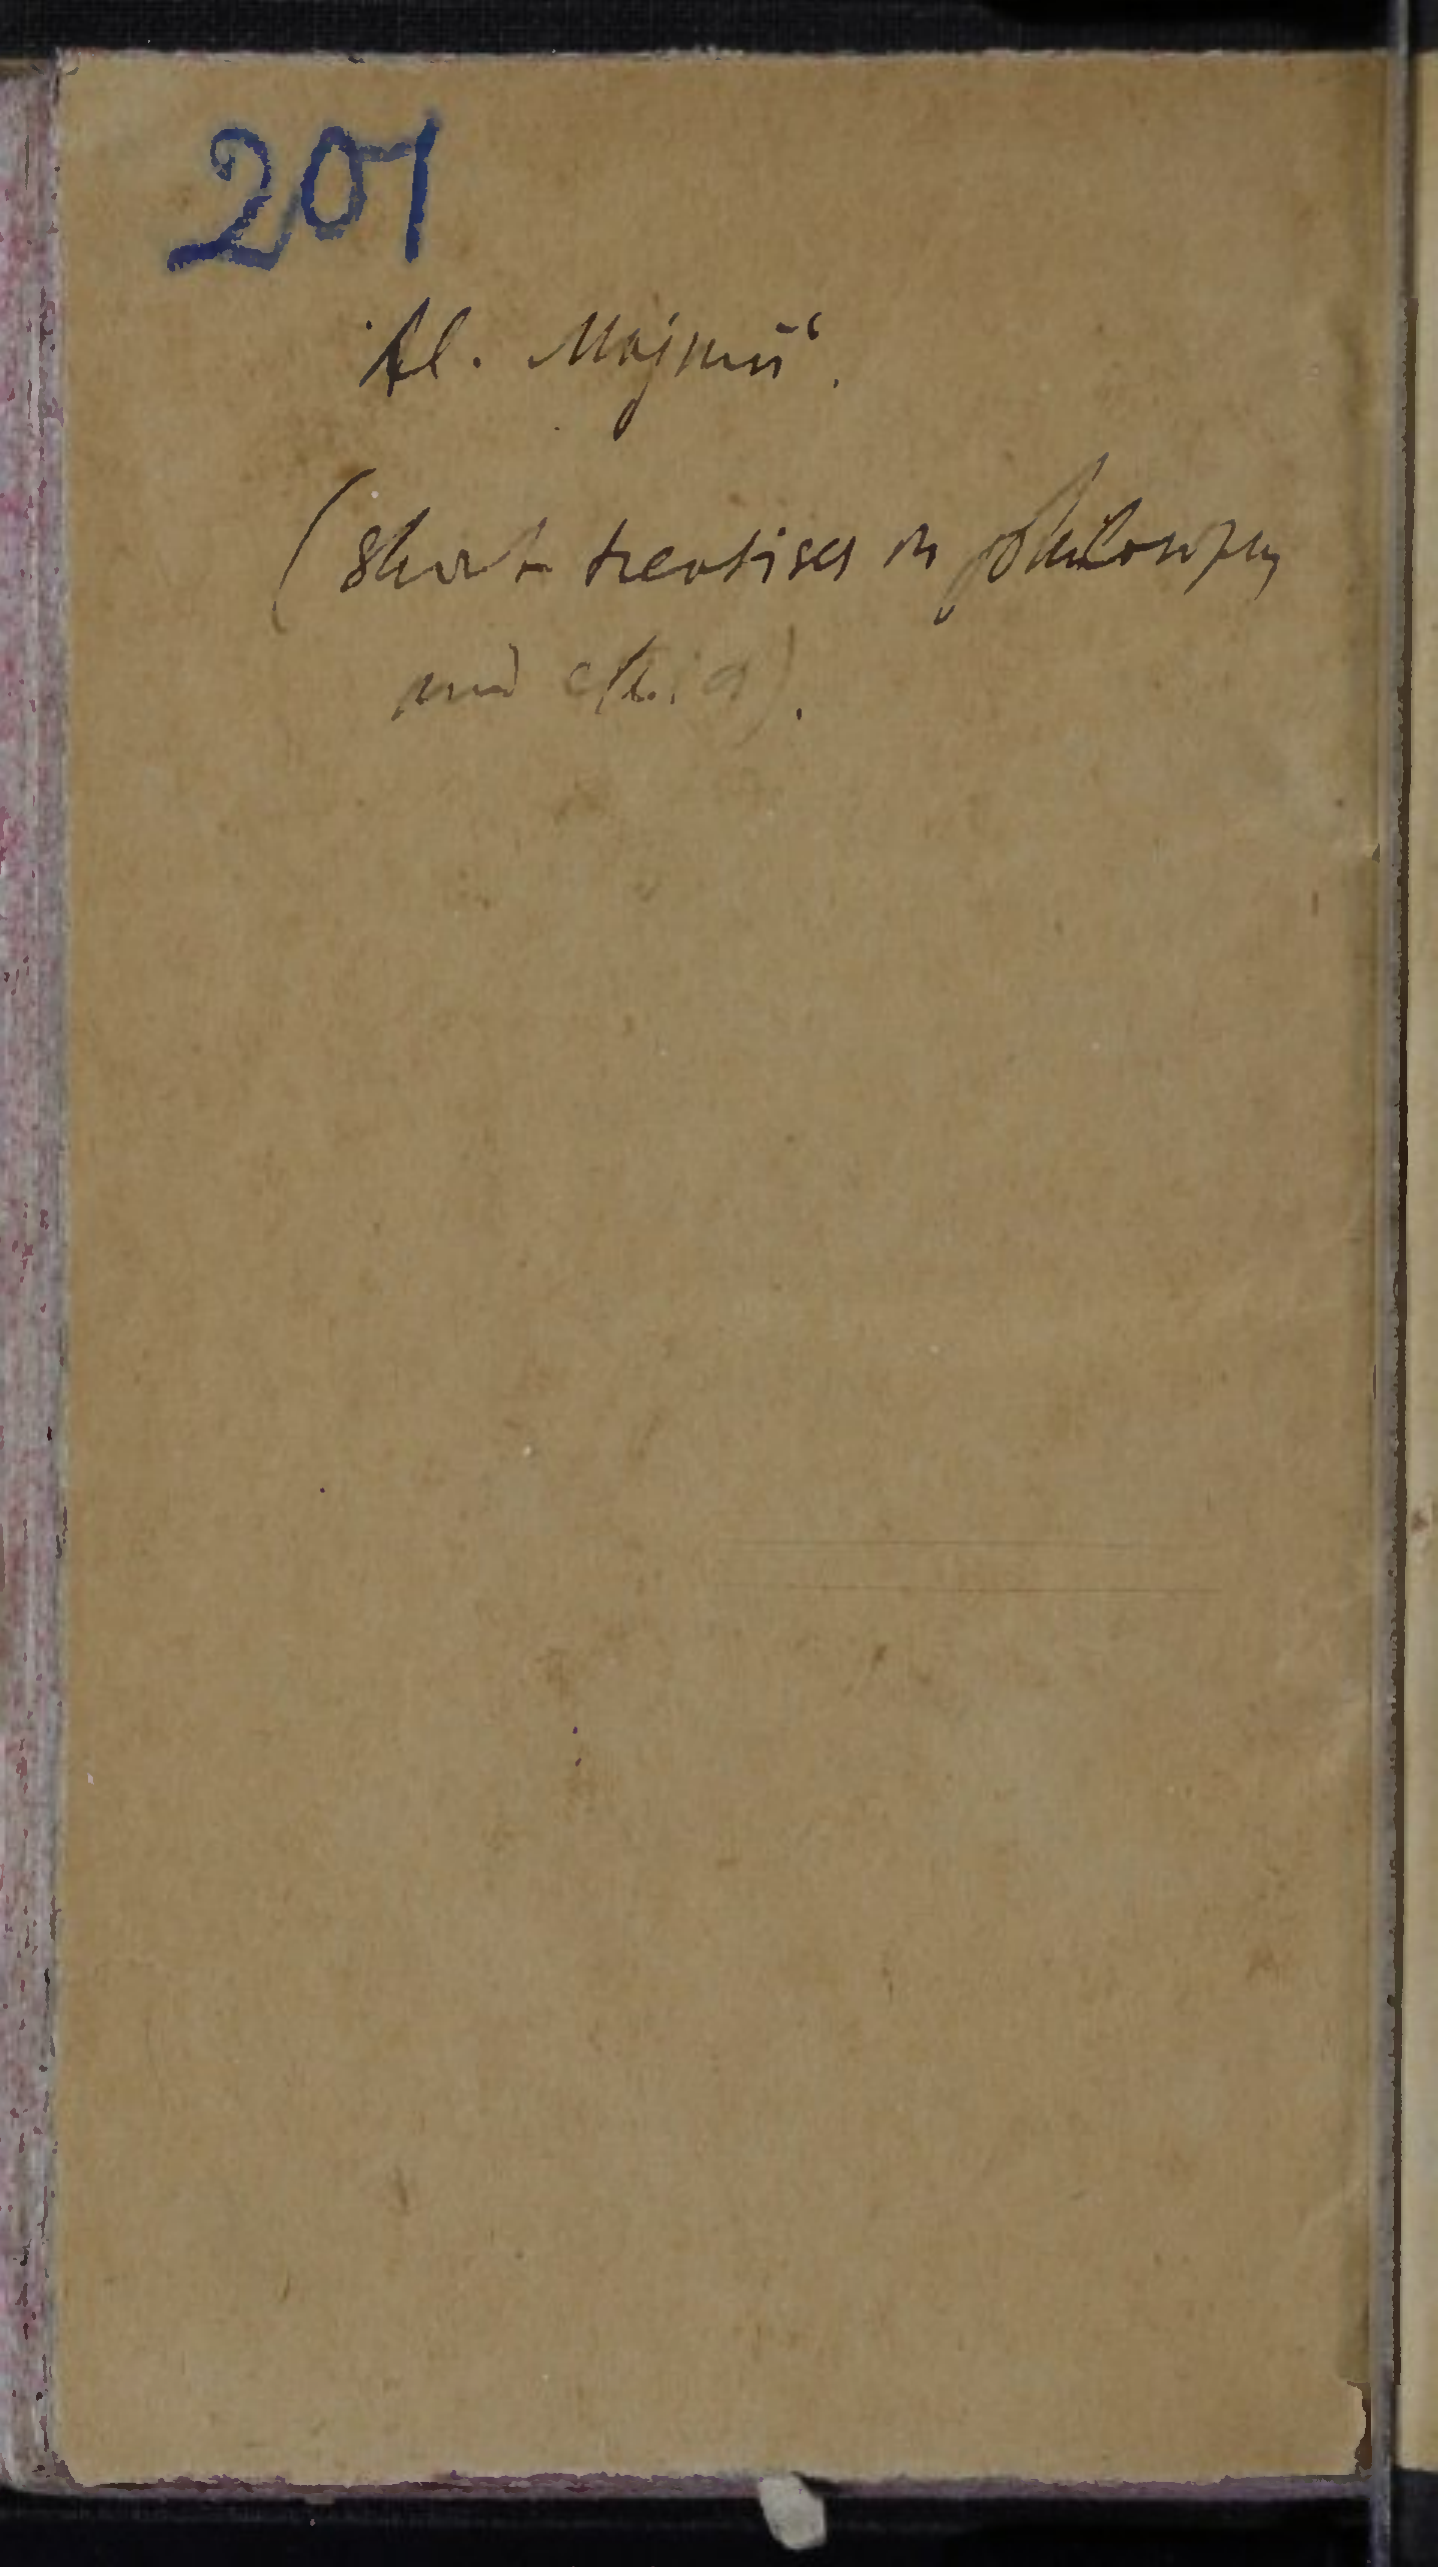 201
Al. Majmū‘.
(Short treatises on philosophy
and ethics).